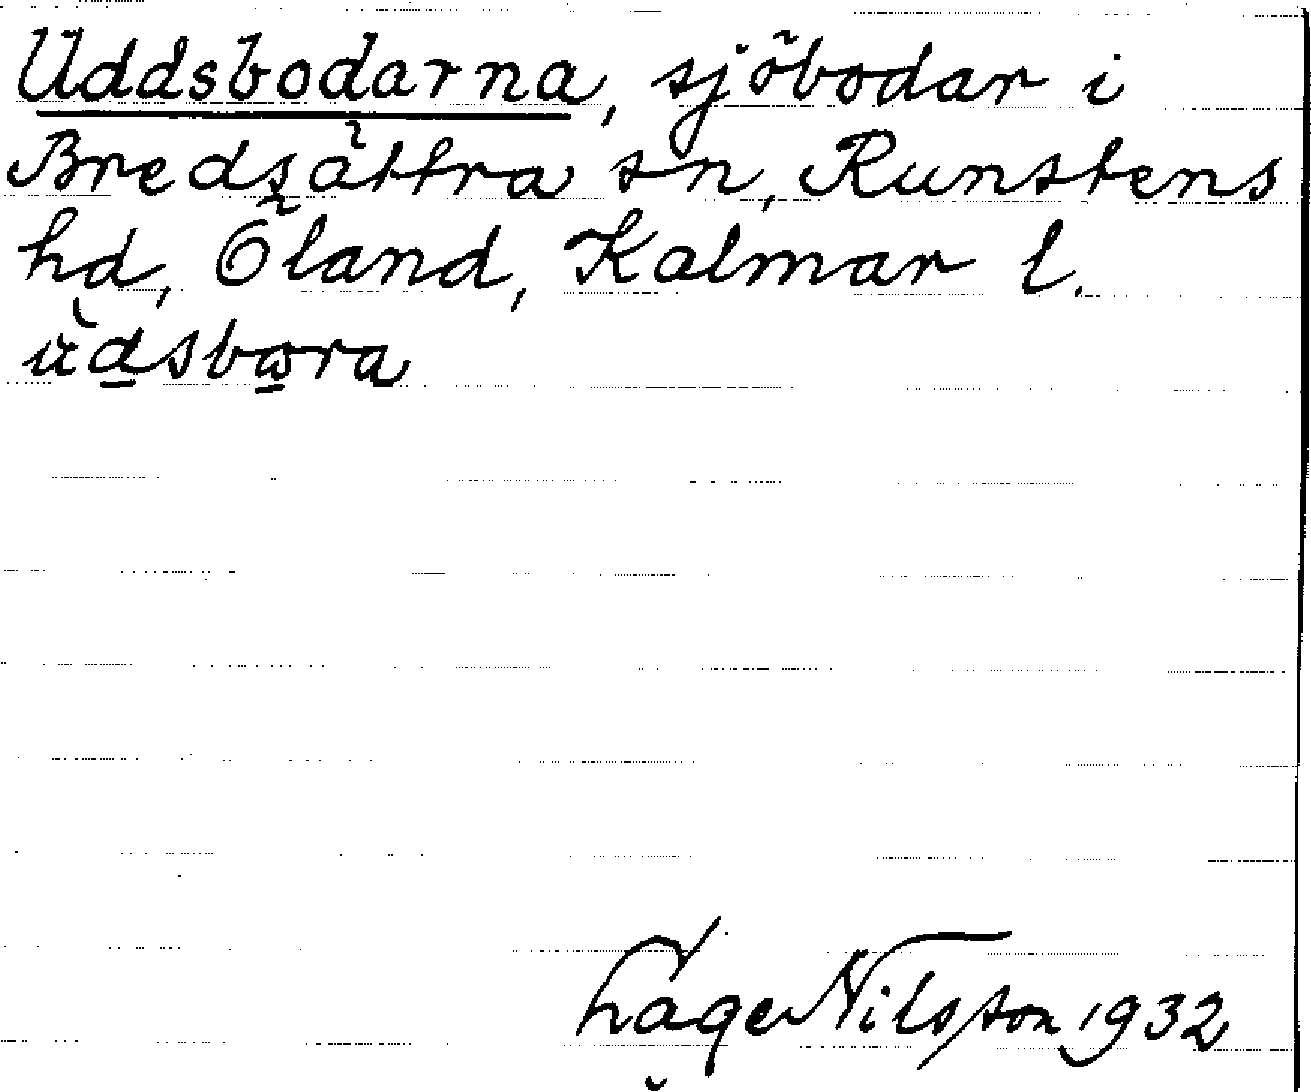 Uddsbodarna, sjöbodar i
Bredsättra sn, Runstens
hd, Öland, Kalmar l.
Nilsson 1932